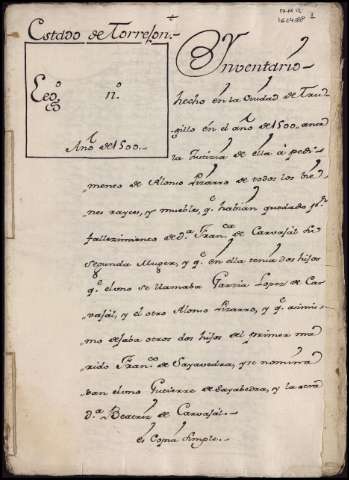 Estado de Torrejon.
Ynventario
hecho en la Ciudad de Tru-
gillo en el año de 1500 ante
la Justicia de ella à pedi-
mento de Alonso Pizarro de todos los bie-
nes rayces, y mueble, q.e habian quedado p.r
fallezimiento de D.a Fran.ca de Carvajal su
segunda Muger, y q.e en ella tenia dos hijos
q.e el vno se llamaba Garcia Lopez de Car-
vajal, y el otro Alonso Pizarro, y q.e asimis-
mo dejaba otros dos hijos del primer ma-
rido Fran.co de Sayavedra, y se nomina-
van el vno Gutierre de Sayabedra, y la otra
D.a Beatriz de Carvajal.
es Copia simple.
Leg.o n.o
Año de 1500.
1